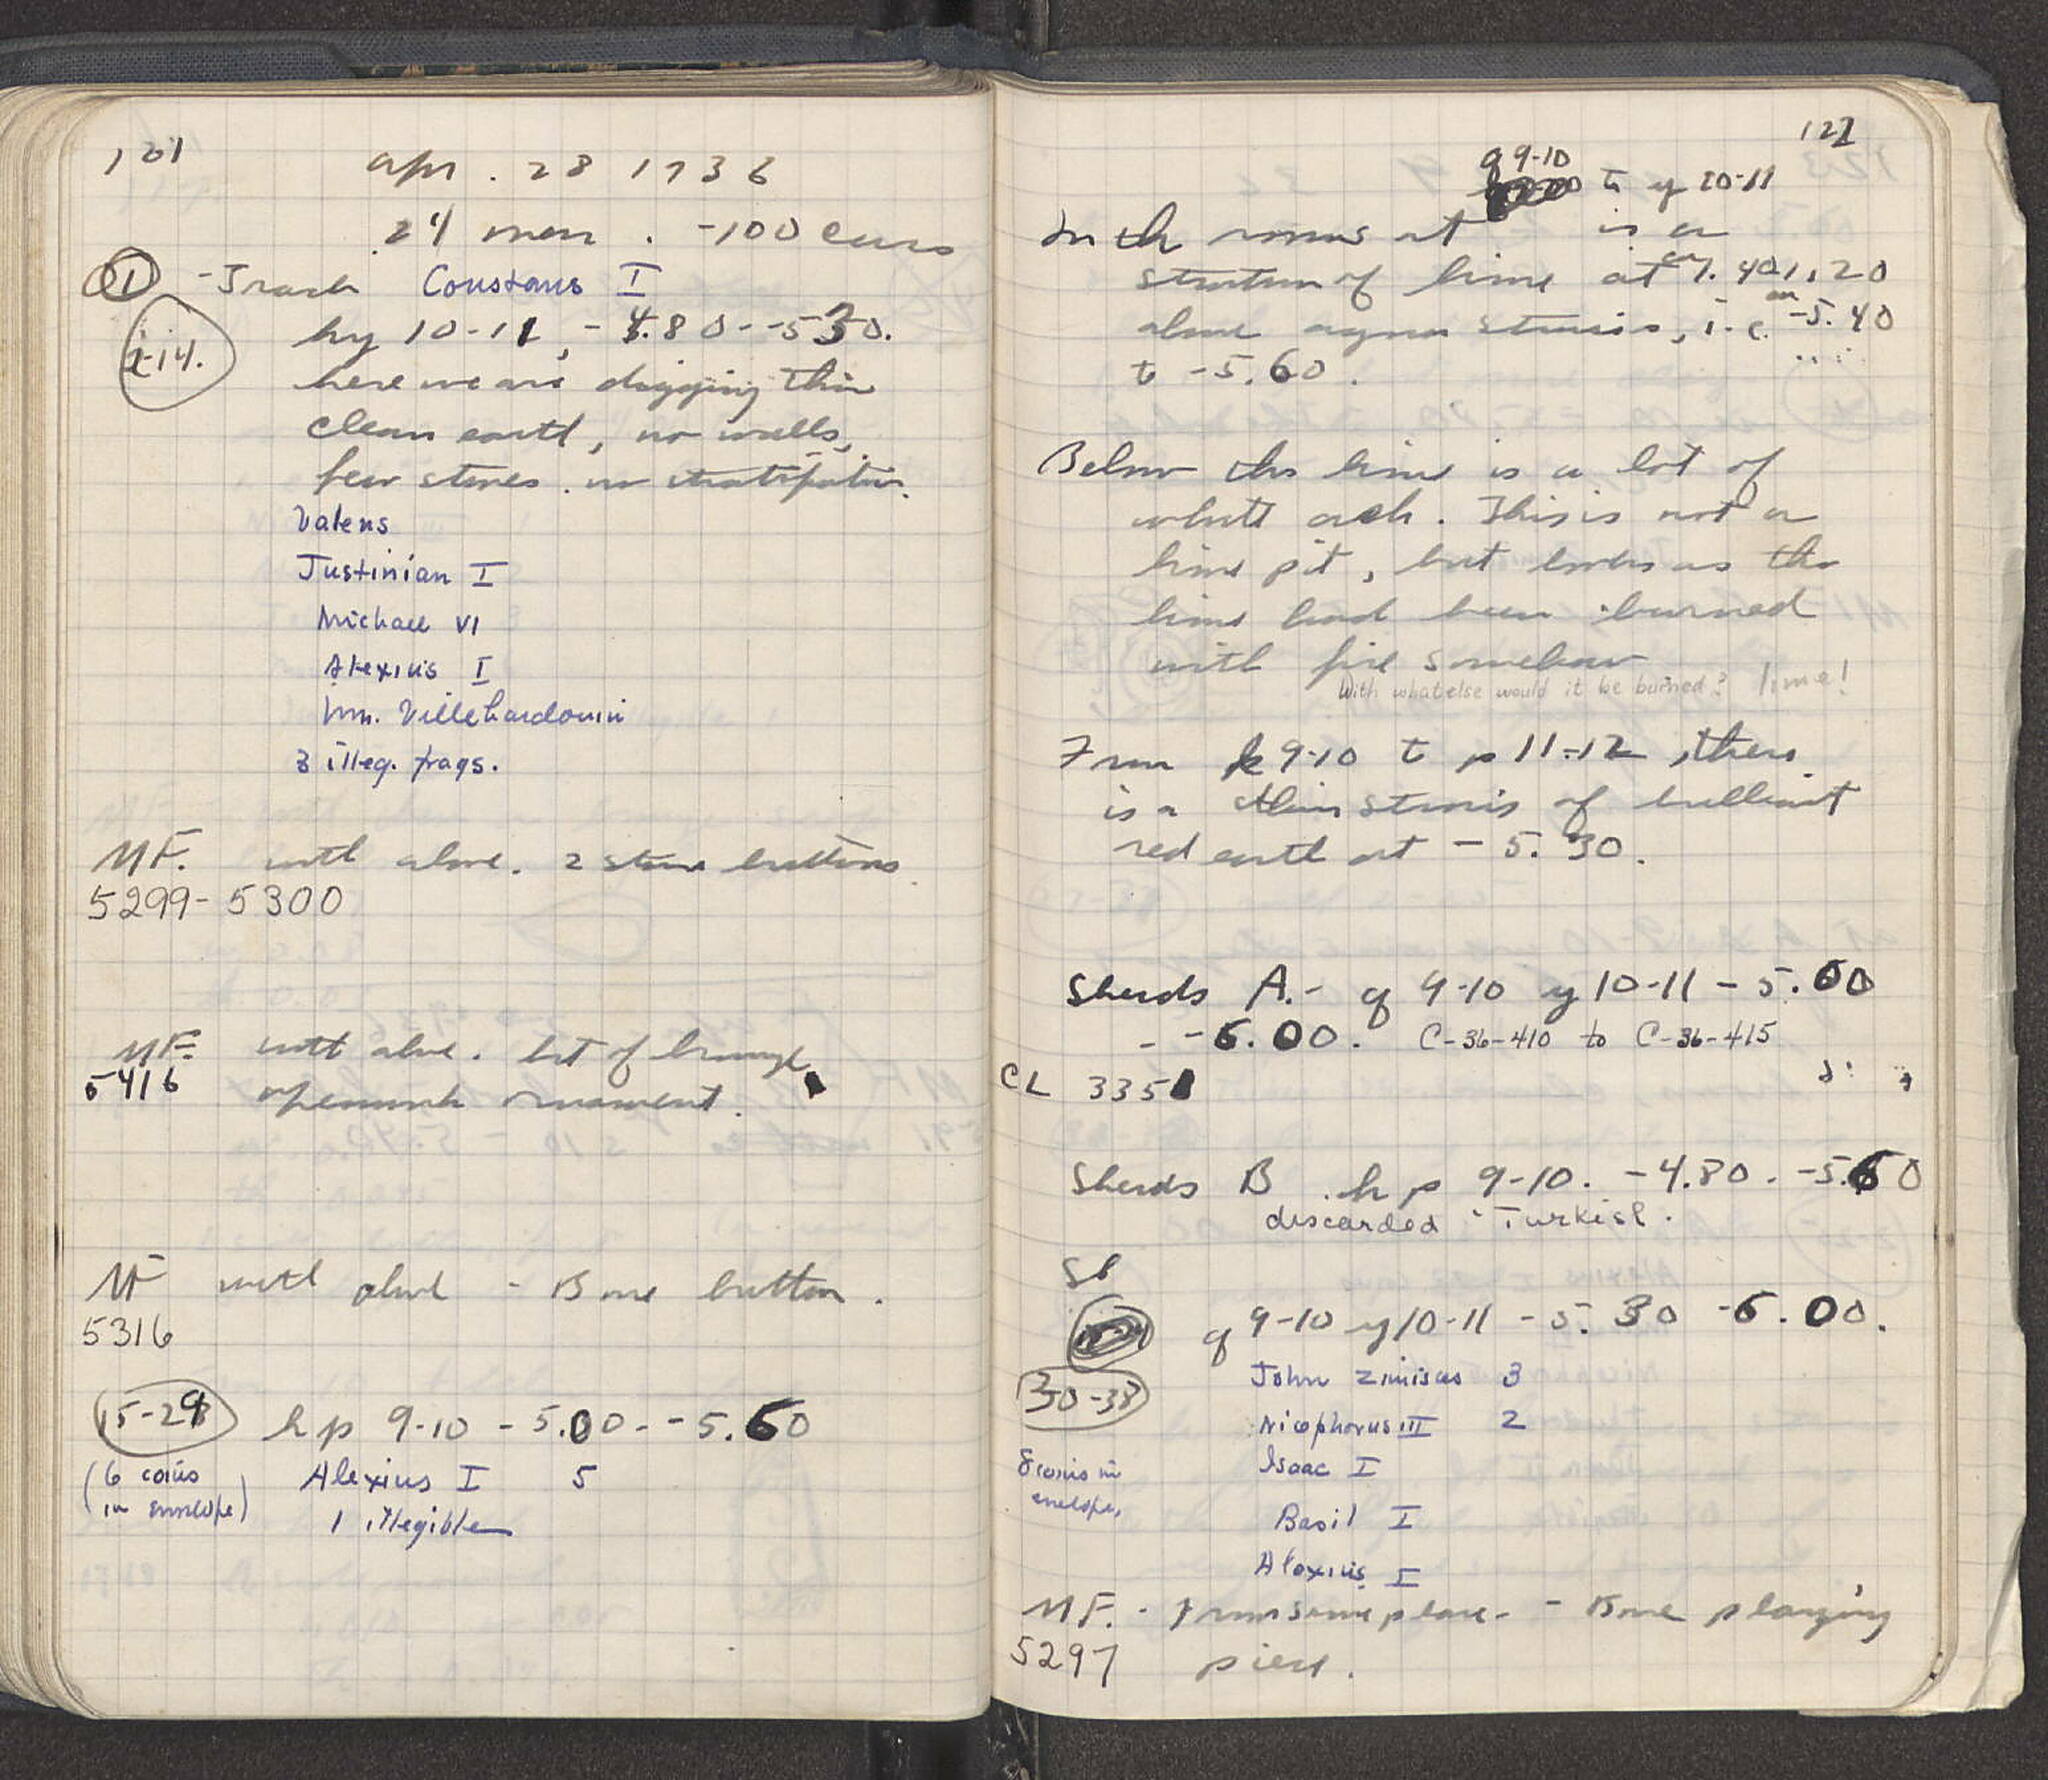 121
Apr. 28 1936
24 men. -100 cars
① - Trash Constans I
2-14. hy 10-11, -4.80--5.30.
here we are digging thin
clean earth, no walls,
few stones. no stratification.
Valens
Justinian I
Michael VI
Alexius I
Wm. Villehardouin
3 illeg. frags.
MF. with above. 2 stone buttons.
5299-5300
MF. with above. bit of bronze
5416 openwork ornament.
MF with above - Bone button.
5316
15-29 h p 9-10 -5.00--5.60
(6 coins Alexius I 5
in envelope) 1 illegible
122
q 9-10 to y 10-11
In the rooms at is a
stratum of lime at
above, i.e. -5.40
to -5.60.
Below the lime is a lot of
white ash. This is not a
lime pit, but looks as tho
lime had been burned
with fire somehow
With what else would it be burned? lime!
From k 9-10 to p 11-12, there
is a thin stosis of brilliant
red earth at -5.30.
Sherds A.- q 9-10 y 10-11 -5.60
- -6.00. C-36-410 to C-36-415
CL 3351
Sherds B. h p 9-10. -4.80. -5.60
discarded Turkish.
q 9-10 y 10-11 -5.30 -6.00.
30-38 John Zimisces 3
Nicephorus III 2
8 coins in Isaac I
envelope,
Basil I
Alexius I
MF. - From same place - - Bone playing
5297 piece.